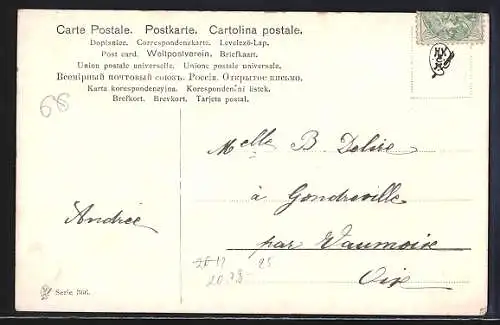 Carte Postale. Postkarte. Cartolina postale.
Dopisnice. Correspondenzkarte. Levelező-Lap.
Post card. Weltpostverein. Briefkaart.
Union postale universelle. Unione postale universale.
Всемірный почтовый союзъ. Россія. Открытое письмо.
Karta korespondencyjna. Korespondenční listek.
Brefkort. Brevkort. Tarjeta postal.
68
Melle B. Delire
à Gondreville
Andrée
par Vaumoise
25
Oise
Serie 366.